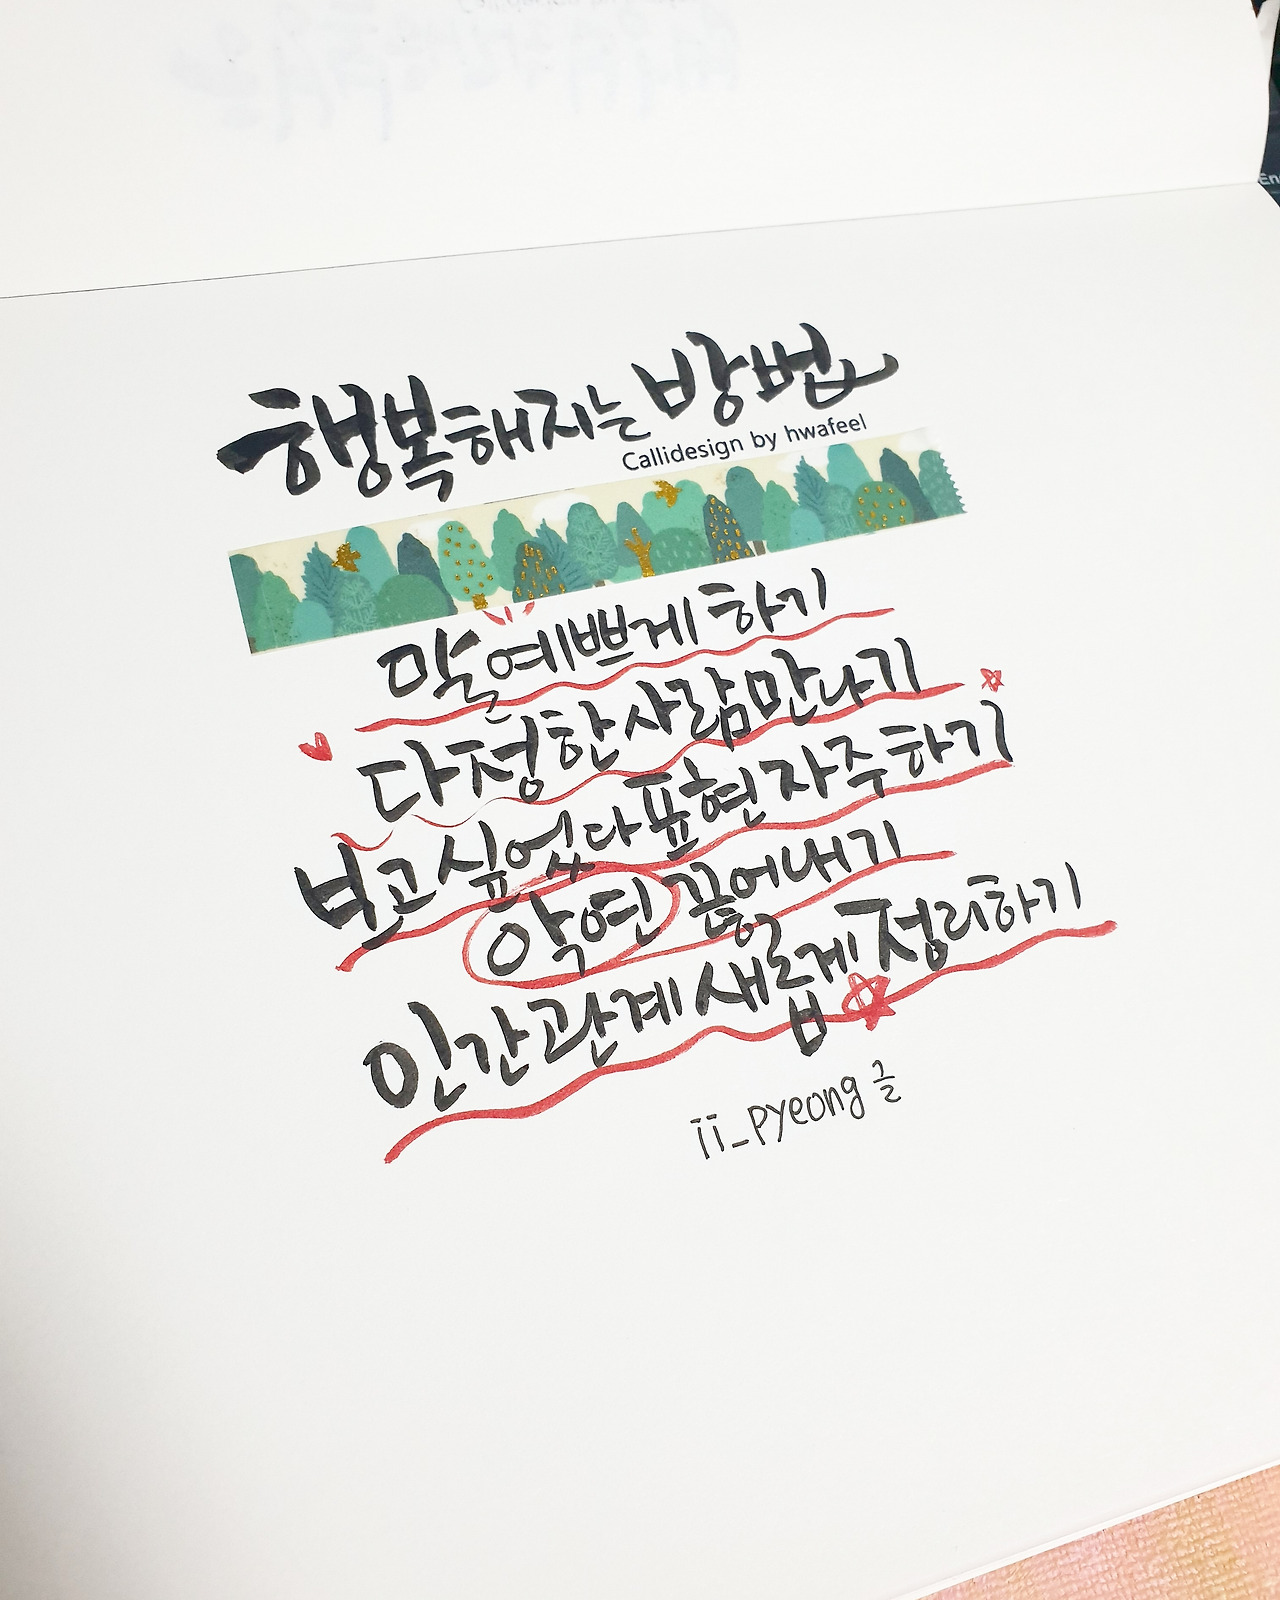 행복해지는 방법
Callidesign by hwafeel
말 예쁘게 하기
다정한 사람 만나기
보고싶었다 표현 자주하기
악연 끊어내기
인간관계 새롭게 정리하기
ii_pyeong 글